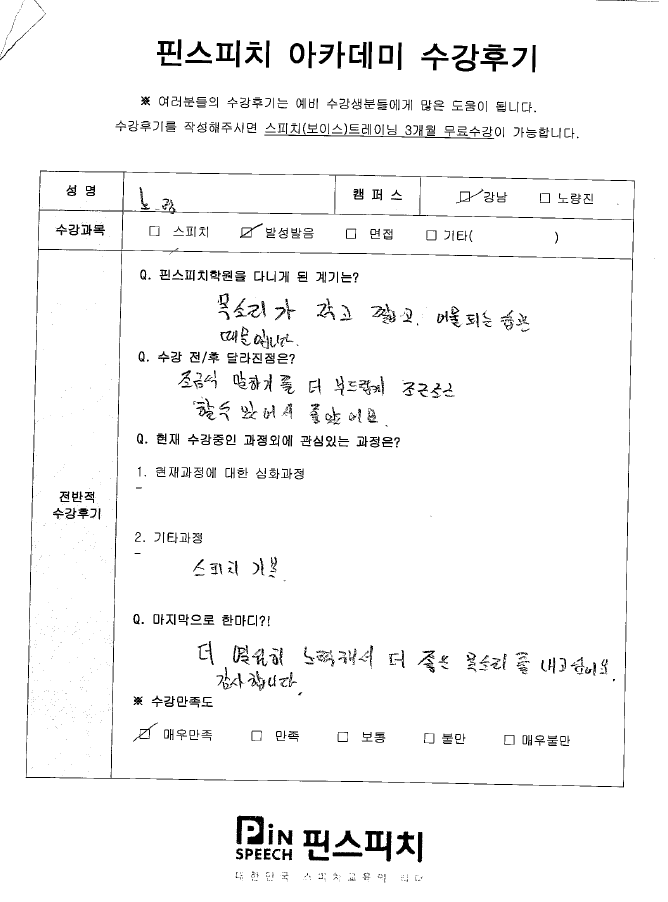 핀스피치 아카데미 수강후기
※ 여러분들의 수강후기는 예비 수강생분들에게 많은 도움이 됩니다.
수강후기를 작성해주시면 스피치(보이스)트레이닝 3개월 무료수강이 가능합니다.
성 명 캠 퍼 스 ☑ 강남 □ 노량진
수강과목 □ 스피치 ☑ 발성발음 □ 면접 □ 기타( )
Q. 핀스피치학원을 다니게 된 계기는?
목소리가 작고 짧고, 어물되는 습관
때문입니다.
Q. 수강 전/후 달라진점은?
조금식 말하기를 더 부드럽게 조근조근
할수 있어서 좋았어요
Q. 현재 수강중인 과정외에 관심있는 과정은?
1. 현재과정에 대한 심화과정
-
전반적
수강후기
2. 기타과정
-
스피치 기본
Q. 마지막으로 한마디?!
더 열심히 노력해서 더 좋은 목소리를 내고싶어요.
감사합니다.
※ 수강만족도
☑ 매우만족 □ 만족 □ 보통 □ 불만 □ 매우불만
PiN
SPEECH 핀스피치
대한민국 스피치교육의 리더